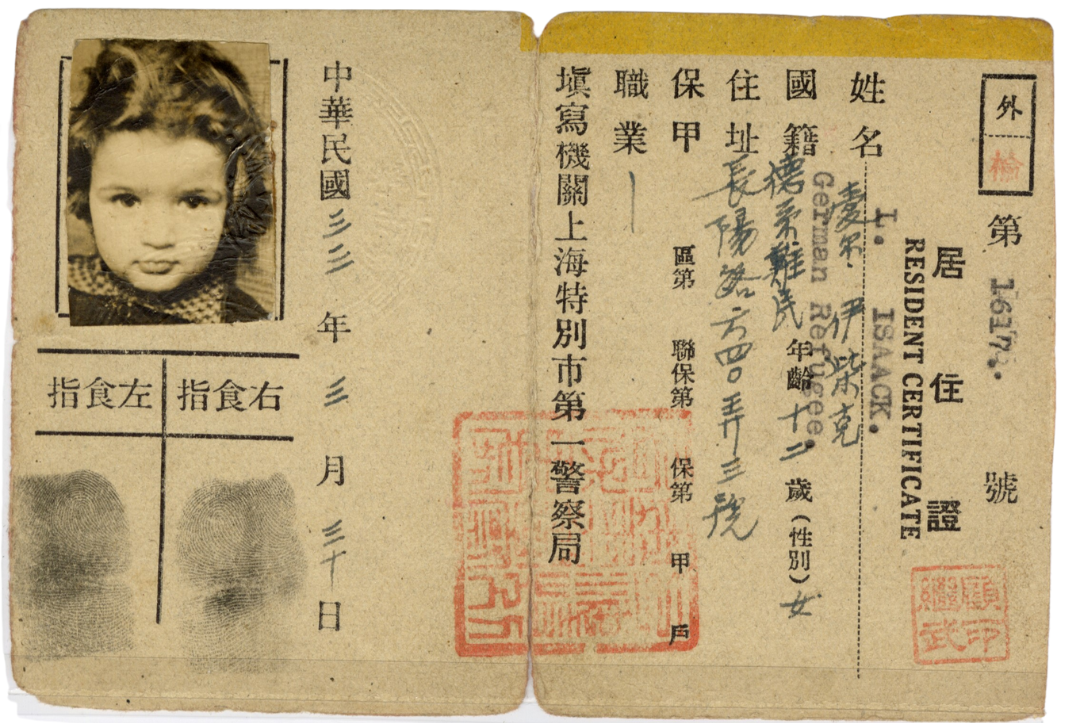 外
檢
第 1617. 號
居住證
RESIDENT CERTIFICATE
L. ISAACK.
姓名 凌尔·伊柴克
German Refugee.
國籍 德系難民 年齡 十二 歲 (性別) 女
住址 長陽路六四〇弄三號
保甲 區第 聯保第 保第 甲 戶
職業 —
填寫機關上海特別市第一警察局
顧繼武印
中華民國三三年三月三十日
右食指
左食指